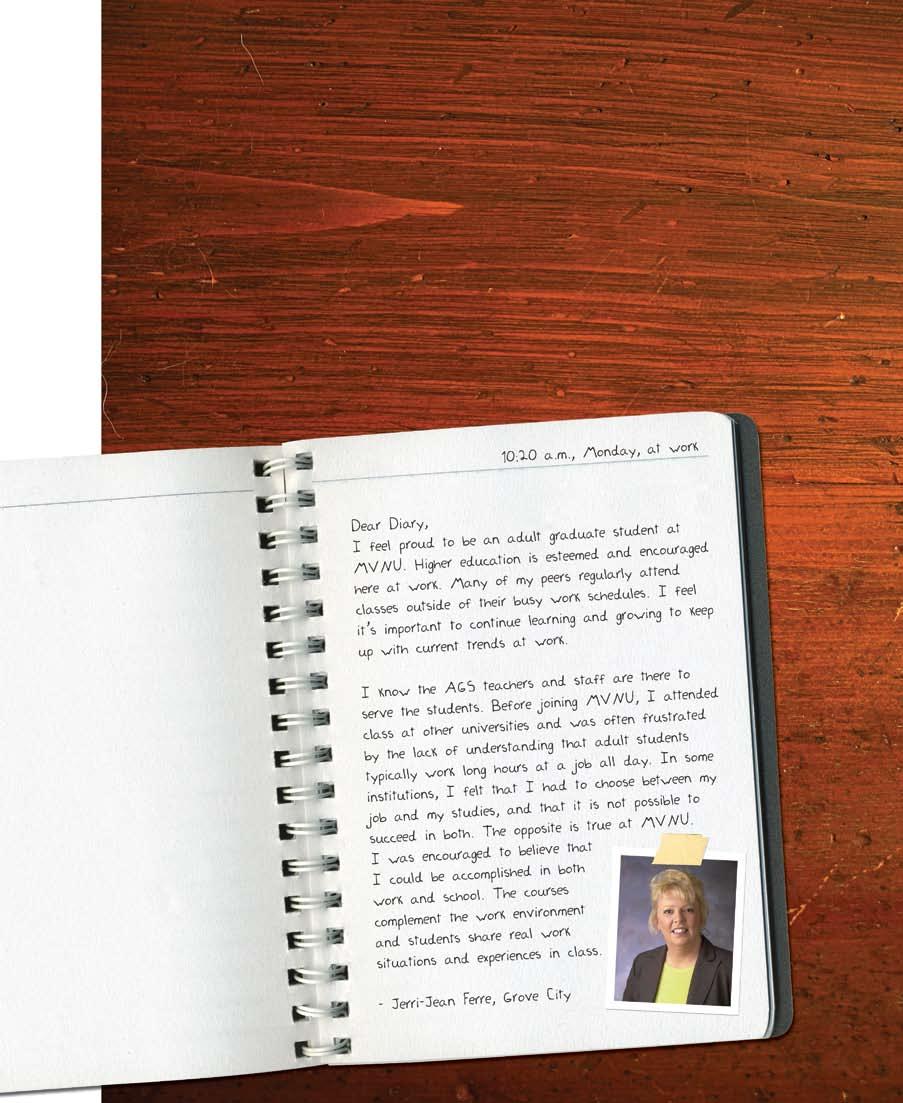 10:20 a.m., Monday, at work
Dear Diary,
I feel proud to be an adult graduate student at
MVNU. Higher education is esteemed and encouraged
here at work. Many of my peers regularly attend
classes outside of their busy work schedules. I feel
it's important to continue learning and growing to keep
up with current trends at work.
I know the AGS teachers and staff are there to
serve the students. Before joining MVNU, I attended
class at other universities and was often frustrated
by the lack of understanding that adult students
typically work long hours at a job all day. In some
institutions, I felt that I had to choose between my
job and my studies, and that it is not possible to
succeed in both. The opposite is true at MVNU.
I was encouraged to believe that
I could be accomplished in both
work and school. The courses
complement the work environment
and students share real work
situations and experiences in class.
- Jerri-Jean Ferre, Grove City